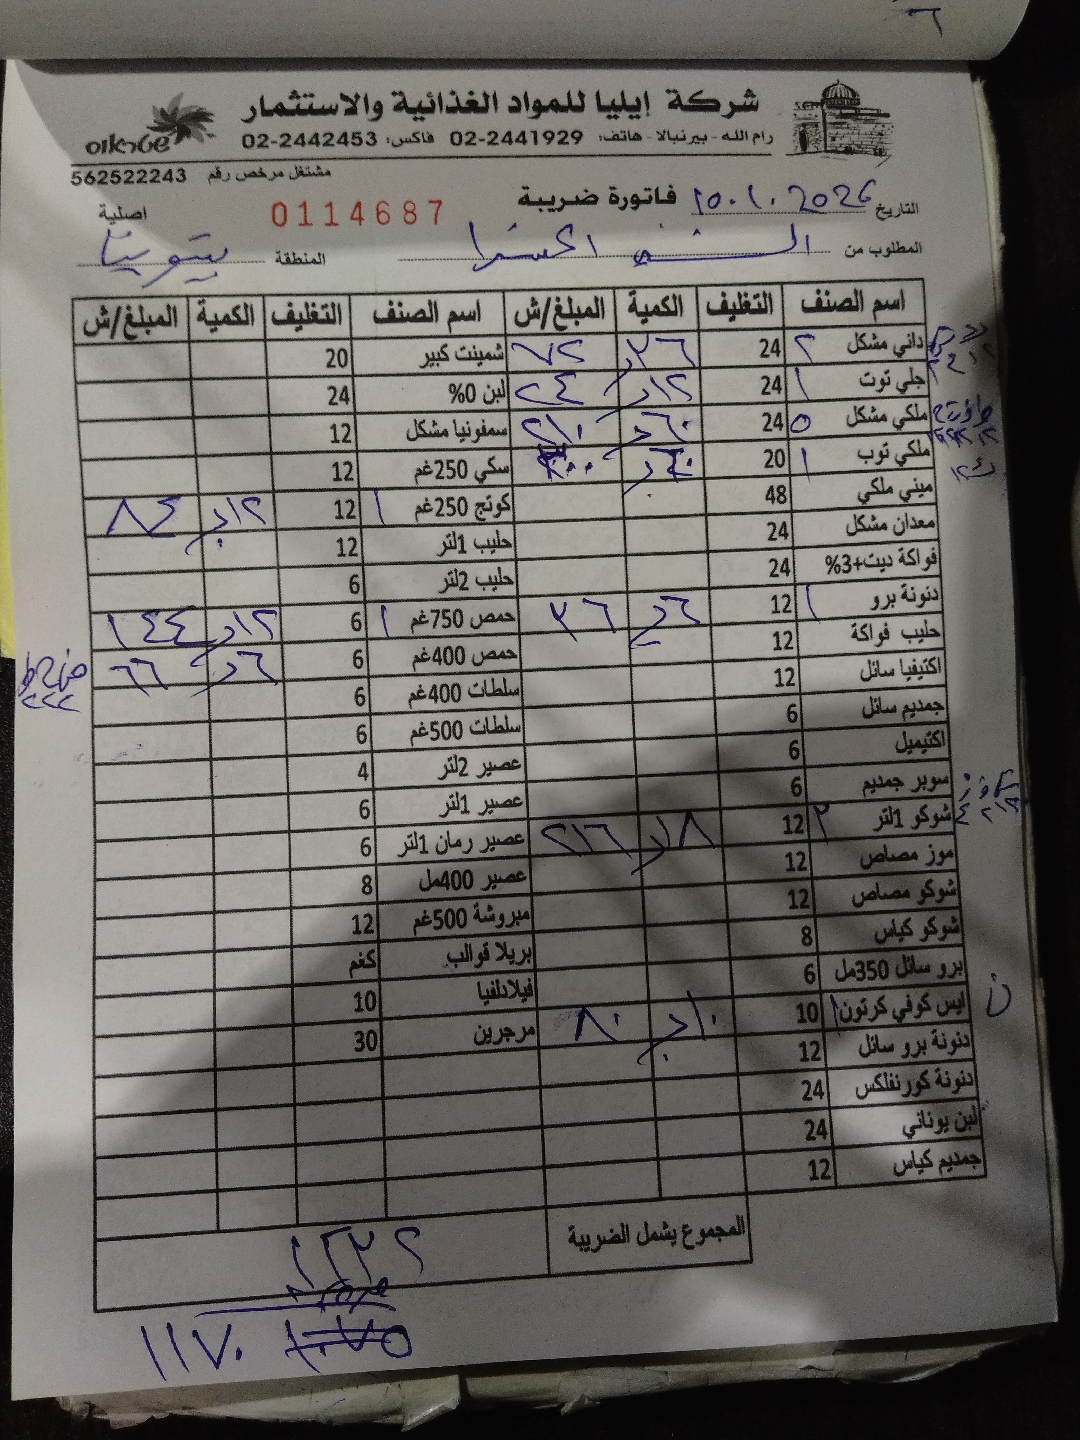 شركة إيليا للمواد الغذائية والاستثمار
رام الله - بيرنبالا - هاتف: 02-2441929 فاكس: 02-2442453
שטראוס
مشتغل مرخص رقم 562522243
التاريخ 2026 فاتورة ضريبة 0114687 اصلية
المطلوب من المنطقة
اسم الصنف التغليف الكمية المبلغ/ش اسم الصنف التغليف الكمية المبلغ/ش
داني مشكل ٢ 24 ٧٢ شمينت كبير 20
جلي توت ١ 24 ١٢ ٢٤ لبن 0% 24
ملكي مشكل ٥ 24 سمفونيا مشكل 12
ملكي توب ١ 20 سكي 250غم 12
ميني ملكي 48 كوتج 250غم ١ 12 ١٢ ٨٤
معدان مشكل 24 حليب 1لتر 12
فواكة ديت+3% 24 حليب 2لتر 6
دنونة برو ١ 12 ٣٦ حمص 750غم ١ 6 ١٢ ١٤٤
حليب فواكة 12 حمص 400غم 6 ٦ ٦٦
اكتيفيا سائل 12 سلطات 400غم 6
جمديم سائل 6 سلطات 500غم 6
اكتيميل 6 عصير 2لتر 4
سوبر جمديم 6 عصير 1لتر 6
شوكو 1لتر 12 ١٨ ٢١٦ عصير رمان 1لتر 6
موز مصاص 12 عصير 400مل 8
شوكو مصاص 12 مبروشة 500غم 12
شوكو كياس 8 بريلا قوالب كغم
برو سائل 350مل 6 فيلادلفيا 10
ايس كوفي كرتون ١ 10 ١٠ ٨٠ مرجرين 30
دنونة برو سائل 12
دنونة كورنفلكس 24
لبن يوناني 24
جمديم كياس 12
المجموع يشمل الضريبة ١٢٣٢
١١٧٠